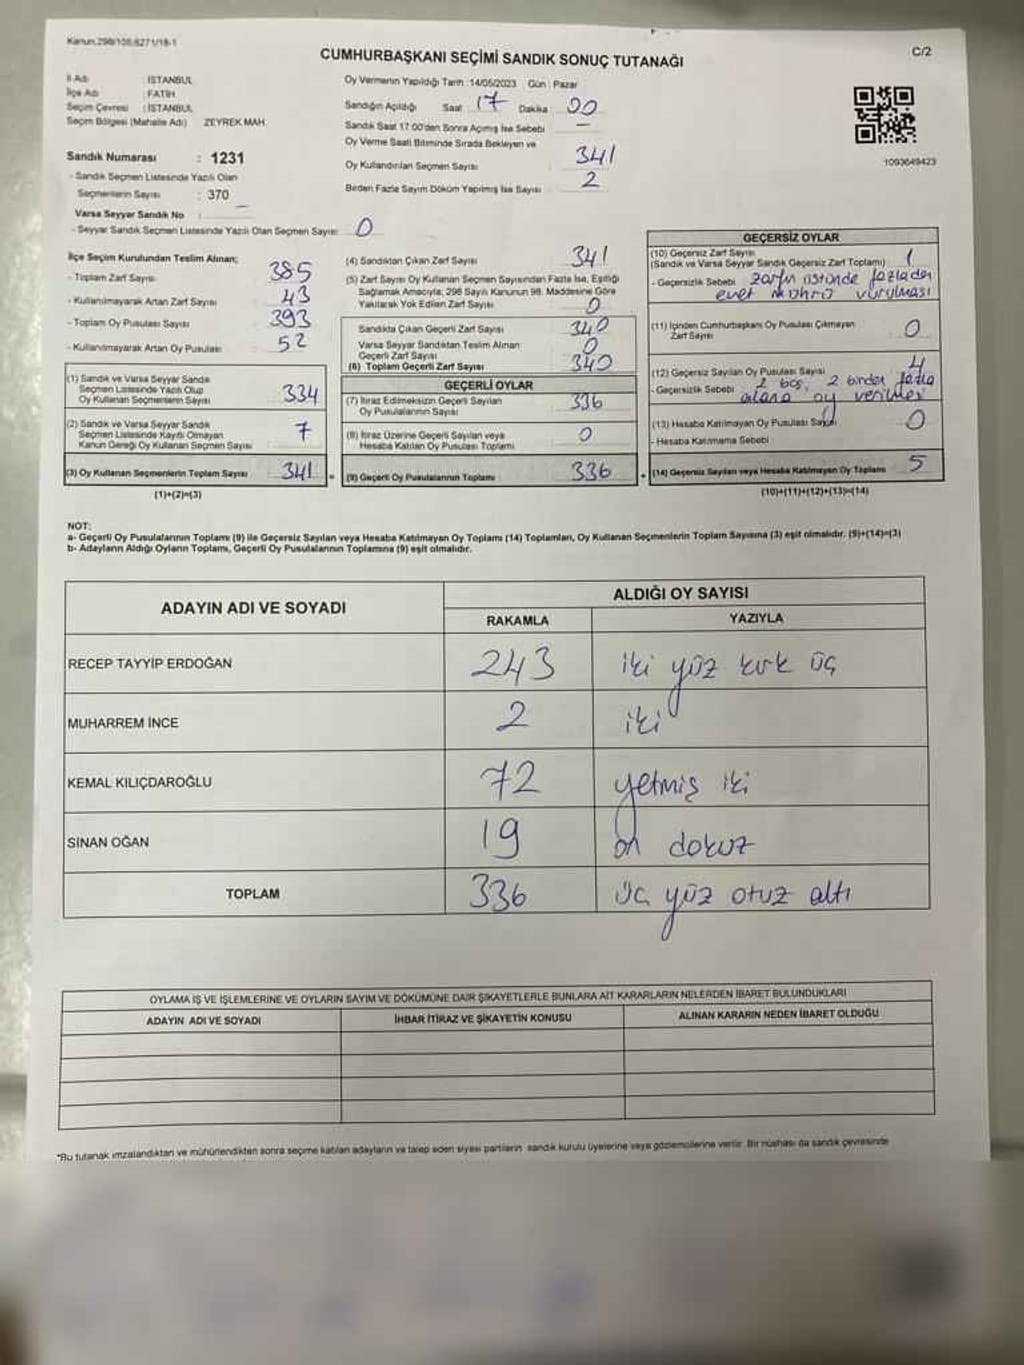 Kanun:298/105;6271/18-1
C/2
CUMHURBAŞKANI SEÇİMİ SANDIK SONUÇ TUTANAĞI
İl Adı : İSTANBUL
İlçe Adı : FATİH
Seçim Çevresi : İSTANBUL
Seçim Bölgesi (Mahalle Adı) ZEYREK MAH.
Sandık Numarası : 1231
- Sandık Seçmen Listesinde Yazılı Olan
Seçmenlerin Sayısı : 370
Varsa Seyyar Sandık No : —
- Seyyar Sandık Seçmen Listesinde Yazılı Olan Seçmen Sayısı: 0
Oy Vermenin Yapıldığı Tarih :14/05/2023 Gün : Pazar
Sandığın Açıldığı Saat : 17 Dakika : 00
Sandık Saat 17:00'den Sonra Açılmış İse Sebebi —
Oy Verme Saati Bitiminde Sırada Bekleyen ve
Oy Kullandırılan Seçmen Sayısı 341
Birden Fazla Sayım Döküm Yapılmış İse Sayısı 2
1093649423
İlçe Seçim Kurulundan Teslim Alınan;
- Toplam Zarf Sayısı 385
- Kullanılmayarak Artan Zarf Sayısı 43
- Toplam Oy Pusulası Sayısı 393
- Kullanılmayarak Artan Oy Pusulası 52
(1) Sandık ve Varsa Seyyar Sandık
Seçmen Listesinde Yazılı Olup
Oy Kullanan Seçmenlerin Sayısı 334
(2) Sandık ve Varsa Seyyar Sandık
Seçmen Listesinde Kaydı Olmayan
Kanun Gereği Oy Kullanan Seçmen Sayısı 7
(3) Oy Kullanan Seçmenlerin Toplam Sayısı 341 =
(1)+(2)=(3)
(4) Sandıktan Çıkan Zarf Sayısı 341
(5) Zarf Sayısı Oy Kullanan Seçmen Sayısından Fazla İse, Eşitliği
Sağlamak Amacıyla; 298 Sayılı Kanunun 98. Maddesine Göre
Yakılarak Yok Edilen Zarf Sayısı 0
Sandıkta Çıkan Geçerli Zarf Sayısı 340
Varsa Seyyar Sandıktan Teslim Alınan
Geçerli Zarf Sayısı 0
(6) Toplam Geçerli Zarf Sayısı 340
GEÇERLİ OYLAR
(7) İtiraz Edilmeksizin Geçerli Sayılan
Oy Pusulalarının Sayısı 336
(8) İtiraz Üzerine Geçerli Sayılan veya
Hesaba Katılan Oy Pusulası Toplamı 0
(9) Geçerli Oy Pusulalarının Toplamı 336 +
GEÇERSİZ OYLAR
(10) Geçersiz Zarf Sayısı
(Sandık ve Varsa Seyyar Sandık Geçersiz Zarf Toplamı) 1
- Geçersizlik Sebebi zarfın üstünde fazladan
evet mührü vurulması
(11) İçinden Cumhurbaşkanı Oy Pusulası Çıkmayan
Zarf Sayısı 0
(12) Geçersiz Sayılan Oy Pusulası Sayısı 4
- Geçersizlik Sebebi 2 boş, 2 birden fazla
alana oy verilmesi
(13) Hesaba Katılmayan Oy Pusulası Sayısı 0
- Hesaba Katılmama Sebebi
(14) Geçersiz Sayılan veya Hesaba Katılmayan Oy Toplamı 5
(10)+(11)+(12)+(13)=(14)
NOT:
a- Geçerli Oy Pusulalarının Toplamı (9) ile Geçersiz Sayılan veya Hesaba Katılmayan Oy Toplamı (14) Toplamları, Oy Kullanan Seçmenlerin Toplam Sayısına (3) eşit olmalıdır. (9)+(14)=(3)
b- Adayların Aldığı Oyların Toplamı, Geçerli Oy Pusulalarının Toplamına (9) eşit olmalıdır.
ADAYIN ADI VE SOYADI ALDIĞI OY SAYISI
RAKAMLA YAZIYLA
RECEP TAYYİP ERDOĞAN 243 iki yüz kırk üç
MUHARREM İNCE 2 iki
KEMAL KILIÇDAROĞLU 72 yetmiş iki
SİNAN OĞAN 19 on dokuz
TOPLAM 336 üç yüz otuz altı
OYLAMA İŞ VE İŞLEMLERİNE VE OYLARIN SAYIM VE DÖKÜMÜNE DAİR ŞİKAYETLERLE BUNLARA AİT KARARLARIN NELERDEN İBARET BULUNDUKLARI
ADAYIN ADI VE SOYADI İHBAR İTİRAZ VE ŞİKAYETİN KONUSU ALINAN KARARIN NEDEN İBARET OLDUĞU
*Bu tutanak imzalandıktan ve mühürlendikten sonra seçime katılan adayların ve talep eden siyasi partilerin sandık kurulu üyelerine veya gözlemcilerine verilir. Bir nüshası da sandık çevresinde